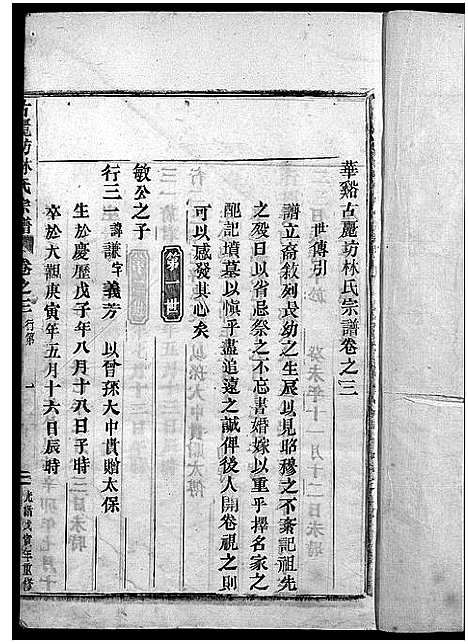 華谿古麗坊林氏宗譜卷之三
世傳引
譜立裔敘列長幼之生屋以見昭穆之不紊記祖先
之歿日以省忌祭之不忘書婚嫁以重乎擇名家之
配記墳墓以慎乎盡追遠之誠俾後人開卷視之則
可以感發其心矣
第一世
敏公之子
行三 諱謙字義芳 以晉孫大中貴贈太保
生於慶歷戊子年八月十八日子時
卒於大觀庚寅年五月十六日辰時
古麗坊林氏宗譜 卷之三 行第 一 光緒戊寅年重修